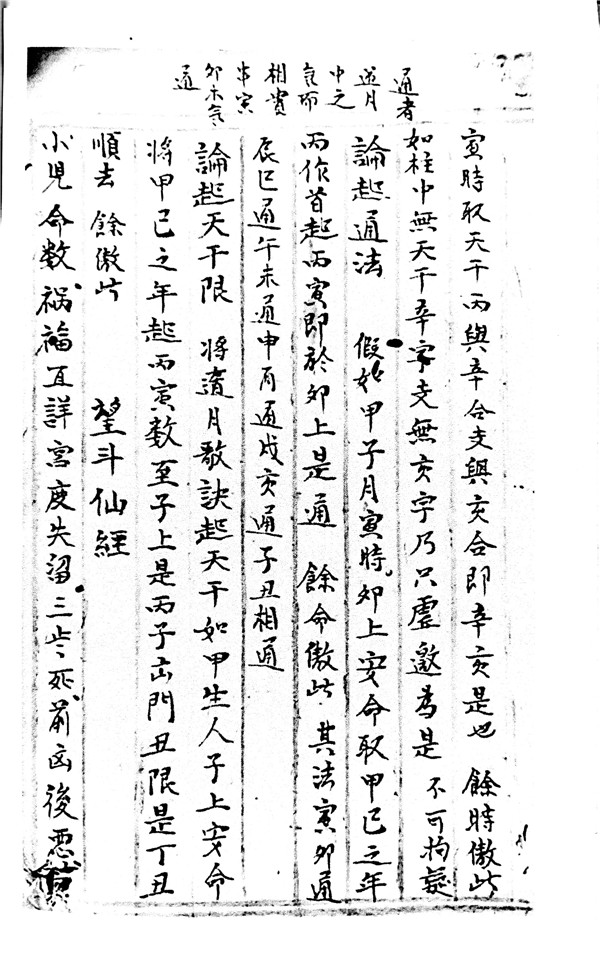 通者
逆月
中之
氣而
相貫
串寅
卯木氣
通
寅時取天干丙與辛合支與亥合即辛亥是也 餘時倣此
如柱中無天干辛字支無亥字乃只虛邀為是 不可拘疑
論起通法 假如甲子月寅時卯上安命取甲己之年
丙作首起丙寅即於卯上是通 餘命倣此 其法寅卯通
辰巳通午未通申酉通戌亥通子丑相通
論起天干限 將遁月歌訣起天干如甲生人子上安命
將甲己之年起丙寅數至子上是丙子出門丑限是丁丑
順去 餘倣此 望斗仙經
小児命数 禍福互詳 宮度失留 三步死 前凶後悪